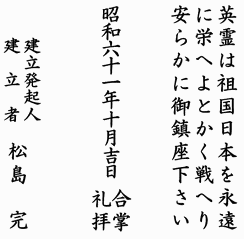 英霊は祖国日本を永遠
に栄へよとかく戦へり
安らかに御鎮座下さい
昭和六十一年十月吉日
合掌
礼拝
建立発起人
建立者 松島 完